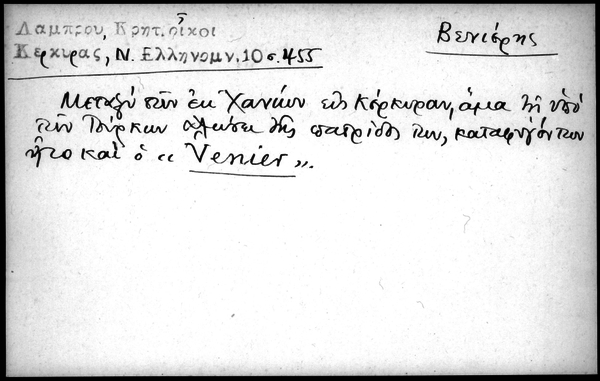 Λαμπρου, Κρητ. οἶκοι
Κερκυρας, Ν. Ελληνομν. 10 σ. 455
Βενιέρης
Μεταξύ τῶν ἐκ Χανίων εἰς Κέρκυραν, ἅμα τῇ ὑπό
τῶν Τούρκων ἁλώσει τῆς πατρίδος των, καταφυγόντων
ἦτο καί ὁ « Venier ».